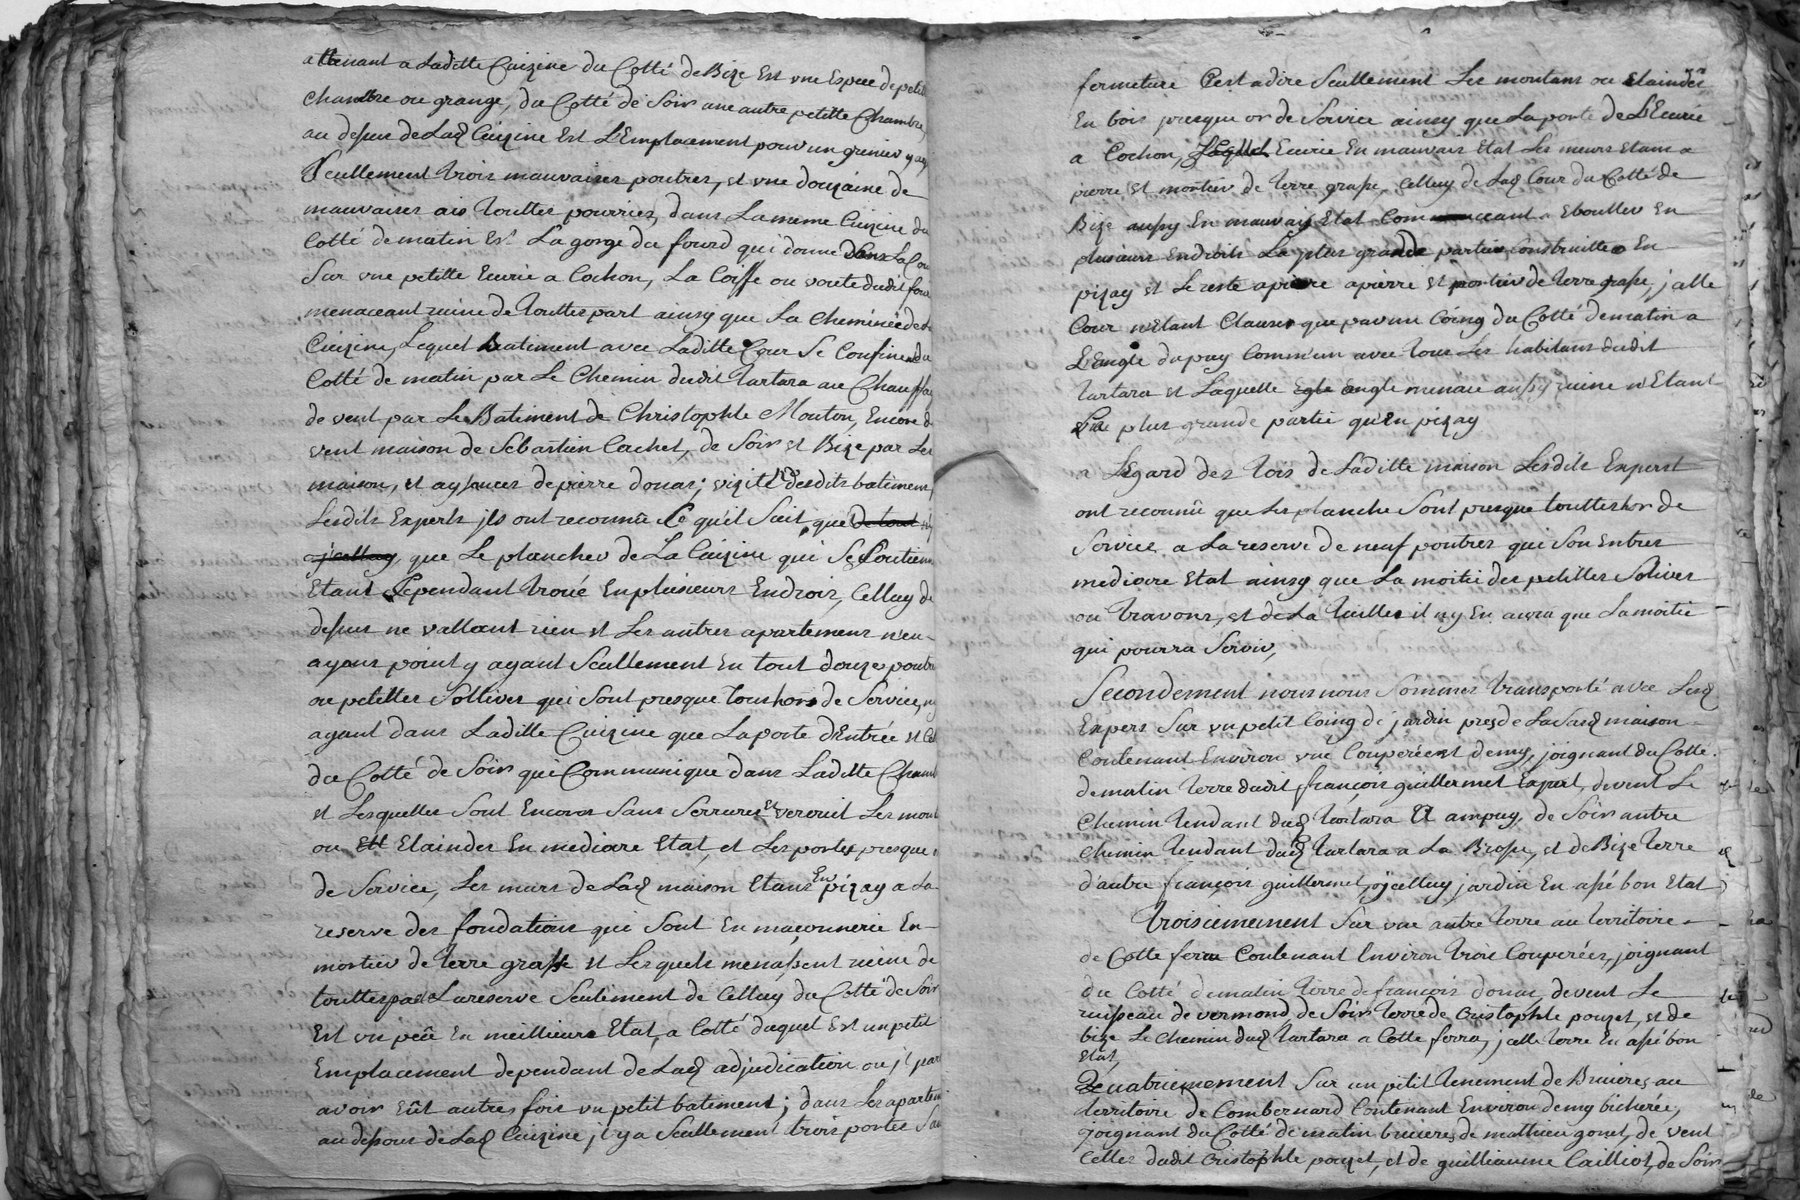 attenant a Laditte Cuizine du Cotté de Bize Est vne Espece de petit
chambre ou grange, du Cotté de Soir une autre petitte Chambre,
au desus de Lad Cuizine Est L'Emplacement pour un grenier y ay
Seullement trois mauvaises poutres, et vne douzaine de
mauvaises ais touttes pourries, dans La meme Cuizine du
Cotté de matin Est La gorge du fourd qui donne dans La Cour
Sur vne petitte Ecurie a Cochon, La Coiffe ou voute dudit four
menaceant ruine de touttes part ainsy que La cheminée de
Cuizine, Lequel Batiment avec Laditte Cour Se Confine du
Cotté de matin par Le Chemin dudit tartara au Chauffa
de vent par Le Batiment de Christophle Mouton, Encore de
vent maison de Sebastien Cachet, de Soir et Bize par Les
maison, et aysances de pierre donas; vizitte desdits batiment
Lesdits Experts jls ont reconnû Ce qu'il Suit, que De tout
jcelluy, que Le plancher de La Cuizine qui Se Soutien
Etant Cependant troüé En plusieurs Endrois, Celluy de
desus ne vallant rien et Les autres apartemens n'en
ayans point y ayant Seullement En tout douze poutre
ou petittes Sollives qui Sont presque tous hors de Service, ny
ayant dans Laditte Cuizine que La porte d'Entrée et Cel
du Cotté de Soir qui Communique dans Laditte Chamb
et Lesquelles Sont Encores Sans Serrures et verouil Les mont
ou Ett Elaindes En mediocre Etat, et Les portes presque
de Service, Les murs de Lad maison Etans En pizay a La
reserve des fondations qui Sont En maçonnerie En
mortier de terre grasse et Lesquels menassent ruine de
touttes pars La reserve Seulement de Celluy du Cotté de Soir
Est vn peü En meillieure Etat, a Cotté duquel Est un petit
Emplacement dependant de Lad adjudication ou jl par
avoir Eüt autres fois vn petit batiment; dans Les apartem
au desous de Lad Cuizine jl y a Seullement trois portes San
fermeture C'est a dire Seullement Les montans ou Elaindes
En bois presque or de Service ainsy que La porte de L'Ecurie
a Cochon, Laquel Ecurie En mauvais Etat Les meurs Etans a
pierre et mortier de terre grasse, Celluy de Lad Cour du Cotté de
Bize aussy En mauvais Etat Commenceant a Ebouller En
plusieurs Endroits La plus grande partie construitte En
pizay et Le reste a pierre a pierre et mortier de terre grasse, jcelle
Cour n'Etant Clause que par un Coing du Cotté de matin a
L'Engle du puy Commun avec tous Les habitans dudit
tartara et Laquelle Egle Engle menace aussy ruine n'Etant
La plus grande partie qu'En pizay
a L'Egard des tois de Laditte maison Lesdits Expert
ont reconnû que Les planche Sont presque touttes hor de
Service a La reserve de neuf poutres qui Son Entres
mediocre Etat ainsy que La moitié des petittes Solives
ou travons, et de La tuilles il n'y En aura que La moitié
qui pourra Servir,
Secondement nous nous Sommes transporté avec Lesd
Expers Sur vn petit Coing de jardin pres de La Susd maison
Contenant Environ vne Couperée et demy, joignant du Cotte
de matin terre dudit françois guillermet Expert, de vent Le
Chemin tendant dud tartara a ampuy, de Soir autre
Chemin tendant dud tartara a La Brosse, et de Bize terre
d'autre françois guillermet, jcelluy jardin En assé bon Etat
Troisiemement Sur vne autre terre au territoire
de Cotte ferra Contenant Environ trois Couperées, joignant
du Cotté de matin terre de françois donas, de vent Le
ruisseau de vermond, de Soir terre de Cristophle pouzet, et de
bize Le Chemin dud tartara a Cotte ferra, jcelle terre En assé bon
Etat,
Quatriemement Sur un petit tenement de Bruieres au
territoire de Combernard Contenant Environ demy bicherée,
joignant du Cotté de matin bruieres de mathieu gonet, de vent
Celles dudit Cristophle pouzet, et de guilliaume Cailliot, de Soir